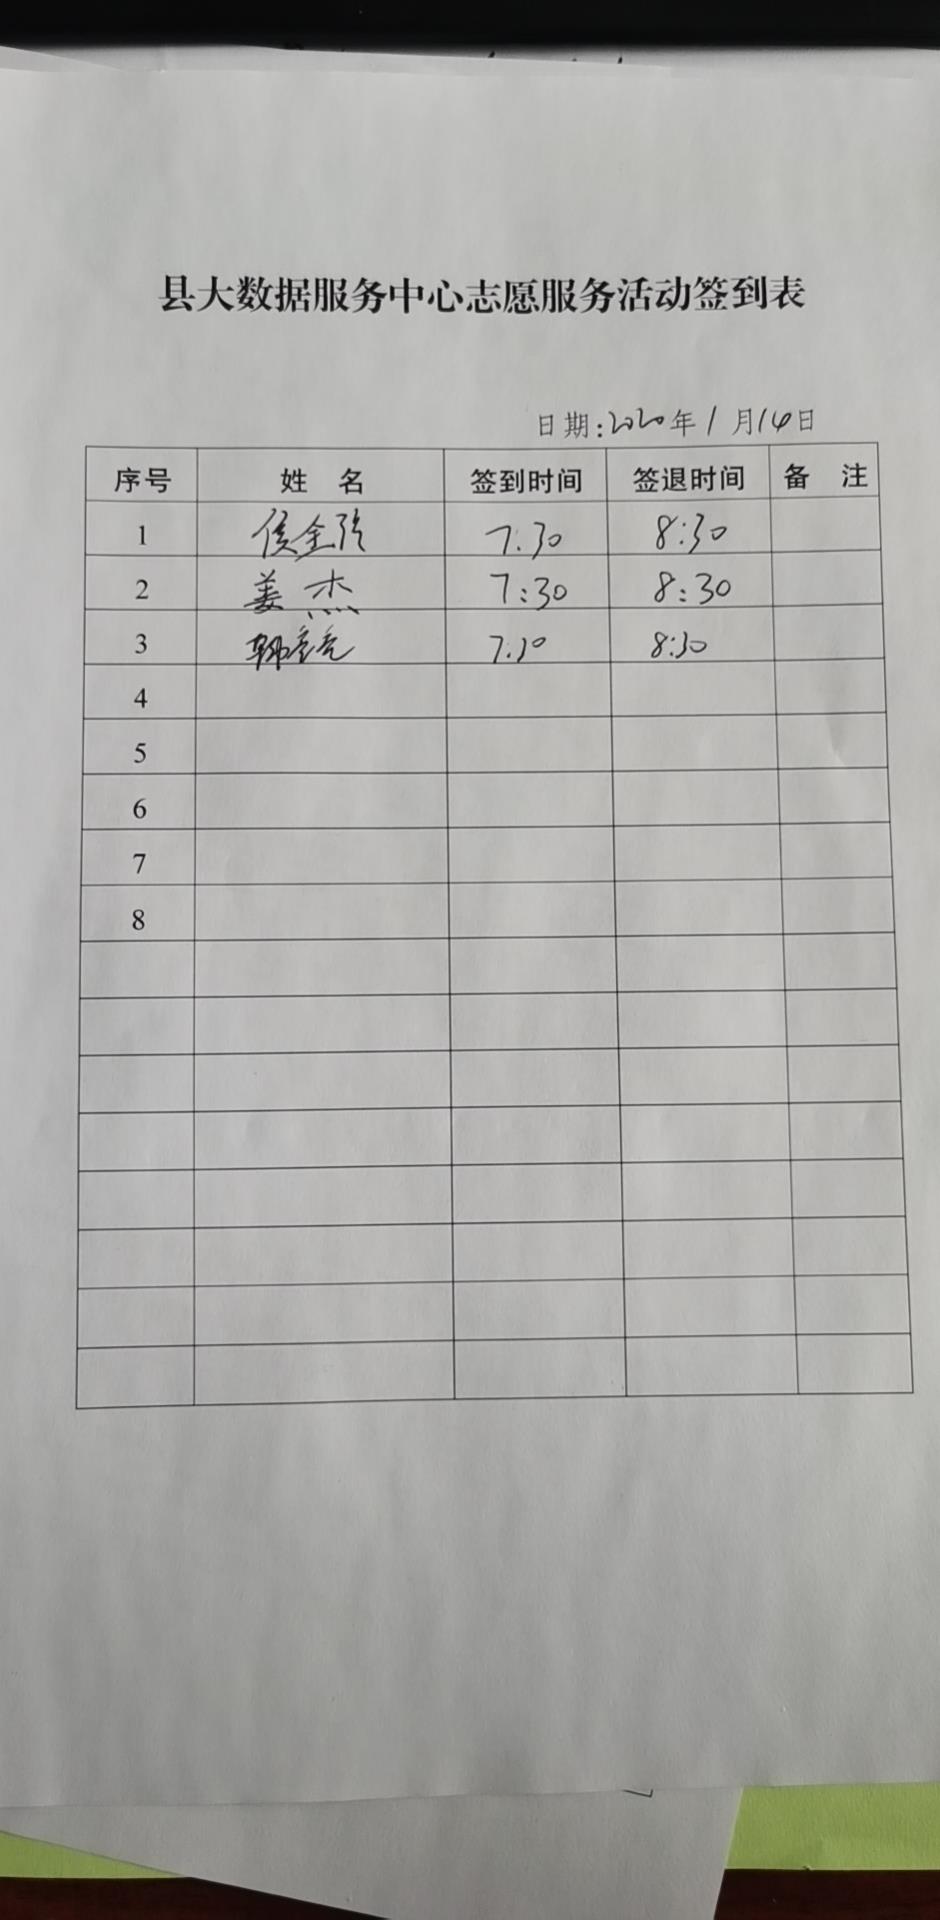 县大数据服务中心志愿服务活动签到表
日期:2020年1月14日
序号 姓 名 签到时间 签退时间 备 注
1 侯金玲 7:30 8:30
2 姜杰 7:30 8:30
3 韩 7:30 8:30
4
5
6
7
8